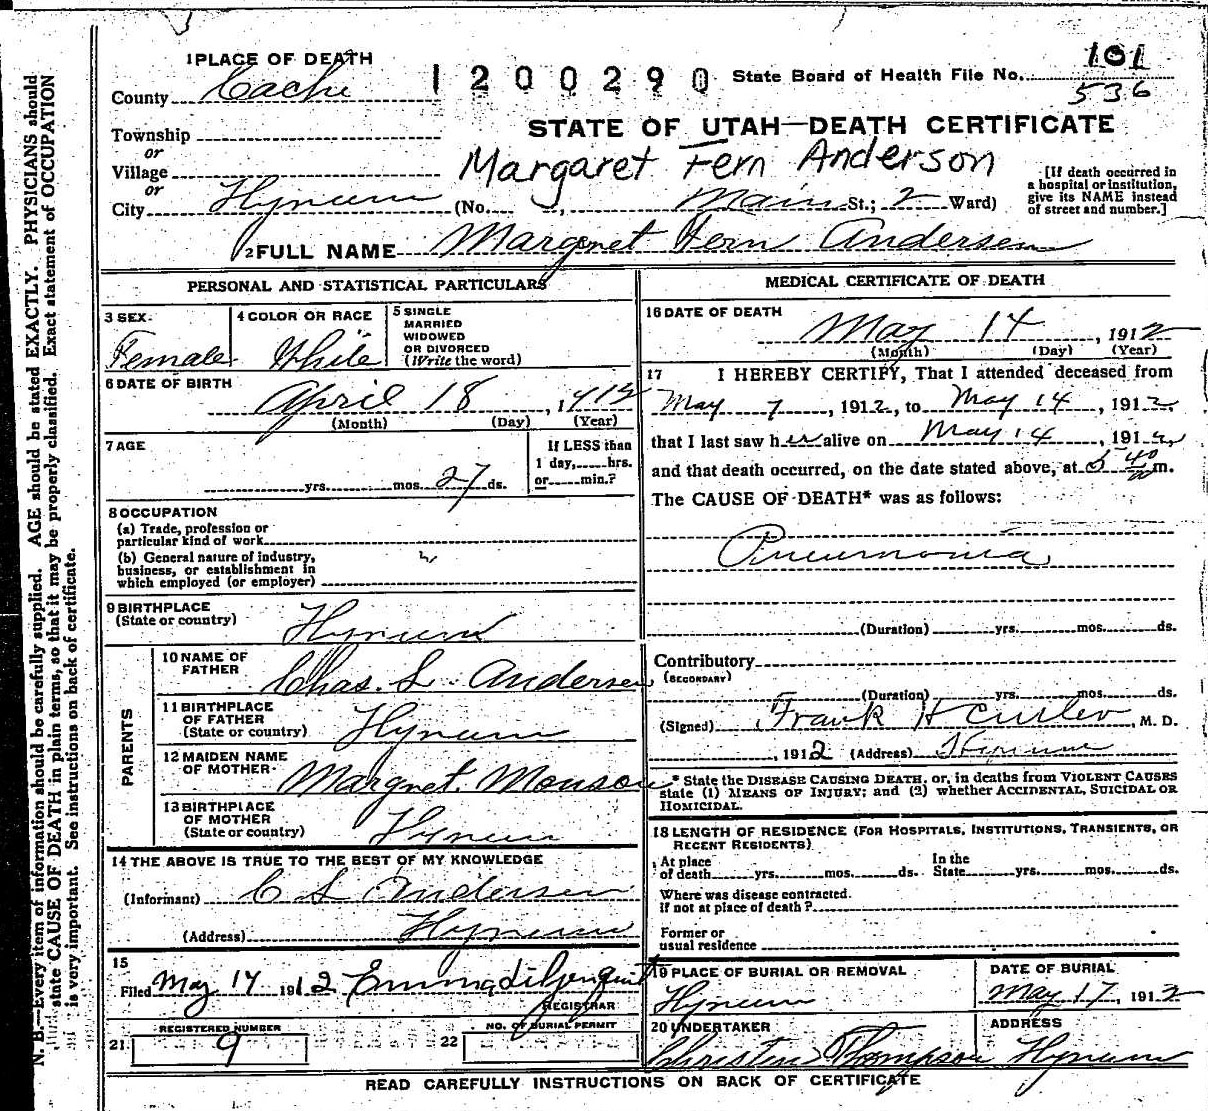 1 PLACE OF DEATH
County Cache
1200290
State Board of Health File No. 101
536
STATE OF UTAH—DEATH CERTIFICATE
Township
or
Village
or
City Hyrum (No. , Main St.; 2 Ward)
Margaret Fern Anderson
[If death occurred in
a hospital or institution,
give its NAME instead
of street and number.]
2 FULL NAME Margret Fern Andersen
PERSONAL AND STATISTICAL PARTICULARS
3 SEX
Female
4 COLOR OR RACE
White
5 SINGLE
MARRIED
WIDOWED
OR DIVORCED
(Write the word)
6 DATE OF BIRTH
April 18, 1912
(Month) (Day) (Year)
7 AGE
yrs. mos. 27 ds.
If LESS than
1 day, hrs.
or min.?
8 OCCUPATION
(a) Trade, profession or
particular kind of work
(b) General nature of industry,
business, or establishment in
which employed (or employer)
9 BIRTHPLACE
(State or country)
Hyrum
PARENTS
10 NAME OF
FATHER
Chas. L. Andersen
11 BIRTHPLACE
OF FATHER
(State or country)
Hyrum
12 MAIDEN NAME
OF MOTHER
Margret. Monson
13 BIRTHPLACE
OF MOTHER
(State or country)
Hyrum
14 THE ABOVE IS TRUE TO THE BEST OF MY KNOWLEDGE
(Informant) C L Andersen
(Address) Hyrum
15
Filed May 14 1912 Emma Liljenquist
REGISTRAR
REGISTERED NUMBER
21 9
NO. OF BURIAL PERMIT
22
MEDICAL CERTIFICATE OF DEATH
16 DATE OF DEATH
May 14, 1912
(Month) (Day) (Year)
17 I HEREBY CERTIFY, That I attended deceased from
May 7, 1912, to May 14, 1912,
that I last saw her alive on May 14, 1912,
and that death occurred, on the date stated above, at 5 40 m.
The CAUSE OF DEATH* was as follows:
Pneumonia
(Duration) yrs. mos. ds.
Contributory
(SECONDARY)
(Duration) yrs. mos. ds.
(Signed) Frank H Curtev, M. D.
, 1912 (Address) Hyrum
* State the DISEASE CAUSING DEATH, or, in deaths from VIOLENT CAUSES
state (1) MEANS OF INJURY; and (2) whether ACCIDENTAL, SUICIDAL OR
HOMICIDAL.
18 LENGTH OF RESIDENCE (FOR HOSPITALS, INSTITUTIONS, TRANSIENTS, OR
RECENT RESIDENTS)
At place
of death yrs. mos. ds.
In the
State yrs. mos. ds.
Where was disease contracted.
if not at place of death?
Former or
usual residence
19 PLACE OF BURIAL OR REMOVAL
Hyrum
DATE OF BURIAL
May 17, 1912
20 UNDERTAKER
Christen Thompson
ADDRESS
Hyrum
READ CAREFULLY INSTRUCTIONS ON BACK OF CERTIFICATE
N. B.—Every item of information should be carefully supplied. AGE should be stated EXACTLY. PHYSICIANS should
state CAUSE OF DEATH in plain terms, so that it may be properly classified. Exact statement of OCCUPATION
is very important. See instructions on back of certificate.